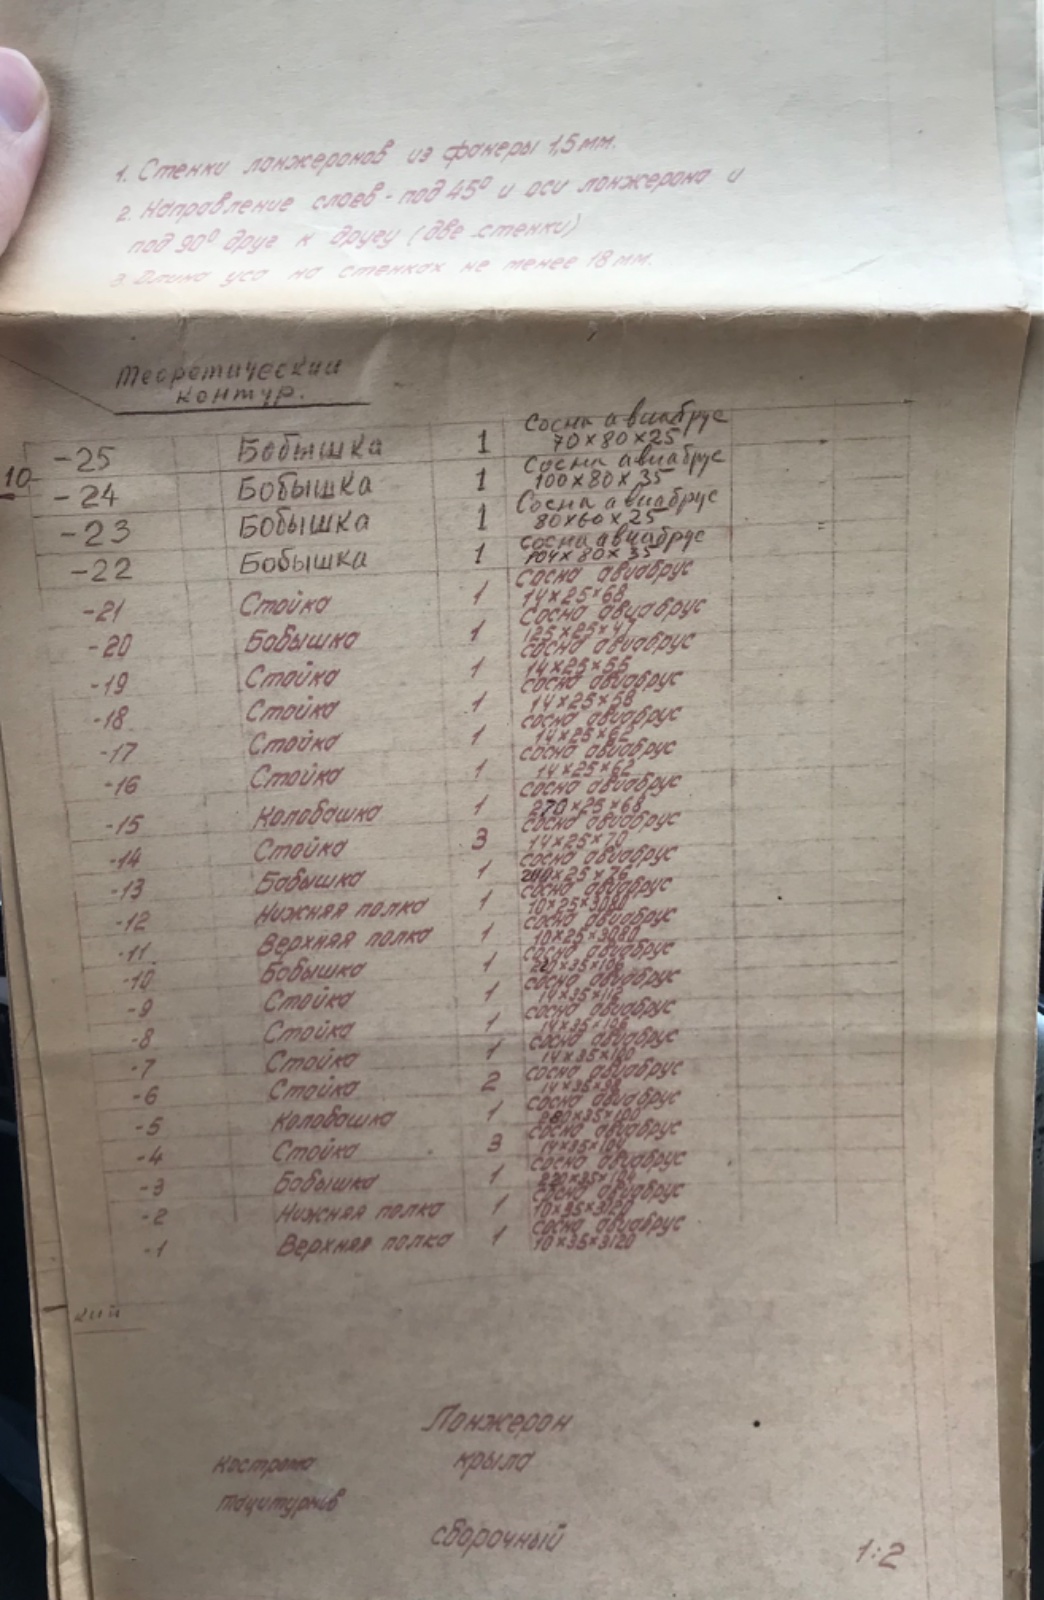 1. Стенки лонжеронов из фанеры 1,5 мм.
2. Направление слоев - под 45° и оси лонжерона и
под 90° друг к другу (две стенки)
3. Длина уса на стенках не менее 18 мм.
Теоретический
контур.
10
-25 Бобышка 1 Сосна авиабрус 70×80×25
-24 Бобышка 1 Сосна авиабрус 100×80×35
-23 Бобышка 1 Сосна авиабрус 80×60×25
-22 Бобышка 1 сосна авиабрус 104×80×35
-21 Стойка 1 Сосна авиабрус 14×25×68
-20 Бобышка 1 Сосна авиабрус 125×25×47
-19 Стойка 1 сосна авиабрус 14×25×55
-18 Стойка 1 сосна авиабрус 14×25×58
-17 Стойка 1 сосна авиабрус 14×25×62
-16 Стойка 1 сосна авиабрус 14×25×62
-15 Колобашка 1 сосна авиабрус 270×25×68
-14 Стойка 3 сосна авиабрус 14×25×70
-13 Бобышка 1 сосна авиабрус
-12 Нижняя полка 1 сосна авиабрус 10×25×3080
-11 Верхняя полка 1 сосна авиабрус 10×25×3080
-10 Бобышка 1 сосна авиабрус
-9 Стойка 1 сосна авиабрус
-8 Стойка 1 сосна авиабрус
-7 Стойка 1 сосна авиабрус
-6 Стойка 2 сосна авиабрус
-5 Колобашка 1 сосна авиабрус
-4 Стойка 3 сосна авиабрус 14×35×104
-3 Бобышка 1 сосна авиабрус
-2 Нижняя полка 1 сосна авиабрус 10×35×3120
-1 Верхняя полка 1 сосна авиабрус 10×35×3120
кий
Лонжерон
Кострома крыла
сборочный
1:2